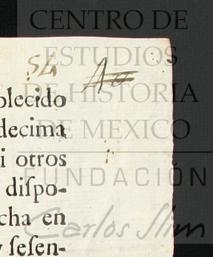 CENTRO DE
ESTUDIOS
DE HISTORIA
DE MEXICO
FUNDACIÓN
Carlos Slim
54
blecido
decima
i otros
dispo-
cha en
y sesen-